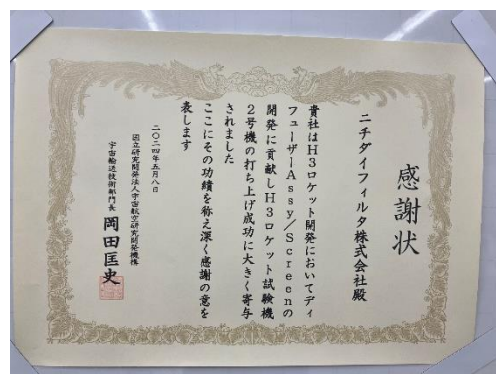 感謝状
ニチダイフィルタ株式会社殿
貴社はH3ロケット開発においてディ
フューザーAssy/Screenの
開発に貢献しH3ロケット試験機
2号機の打ち上げ成功に大きく寄与
されました
ここにその功績を称え深く感謝の意を
表します
二〇二四年五月八日
国立研究開発法人宇宙航空研究開発機構
宇宙輸送技術部門長 岡田匡史